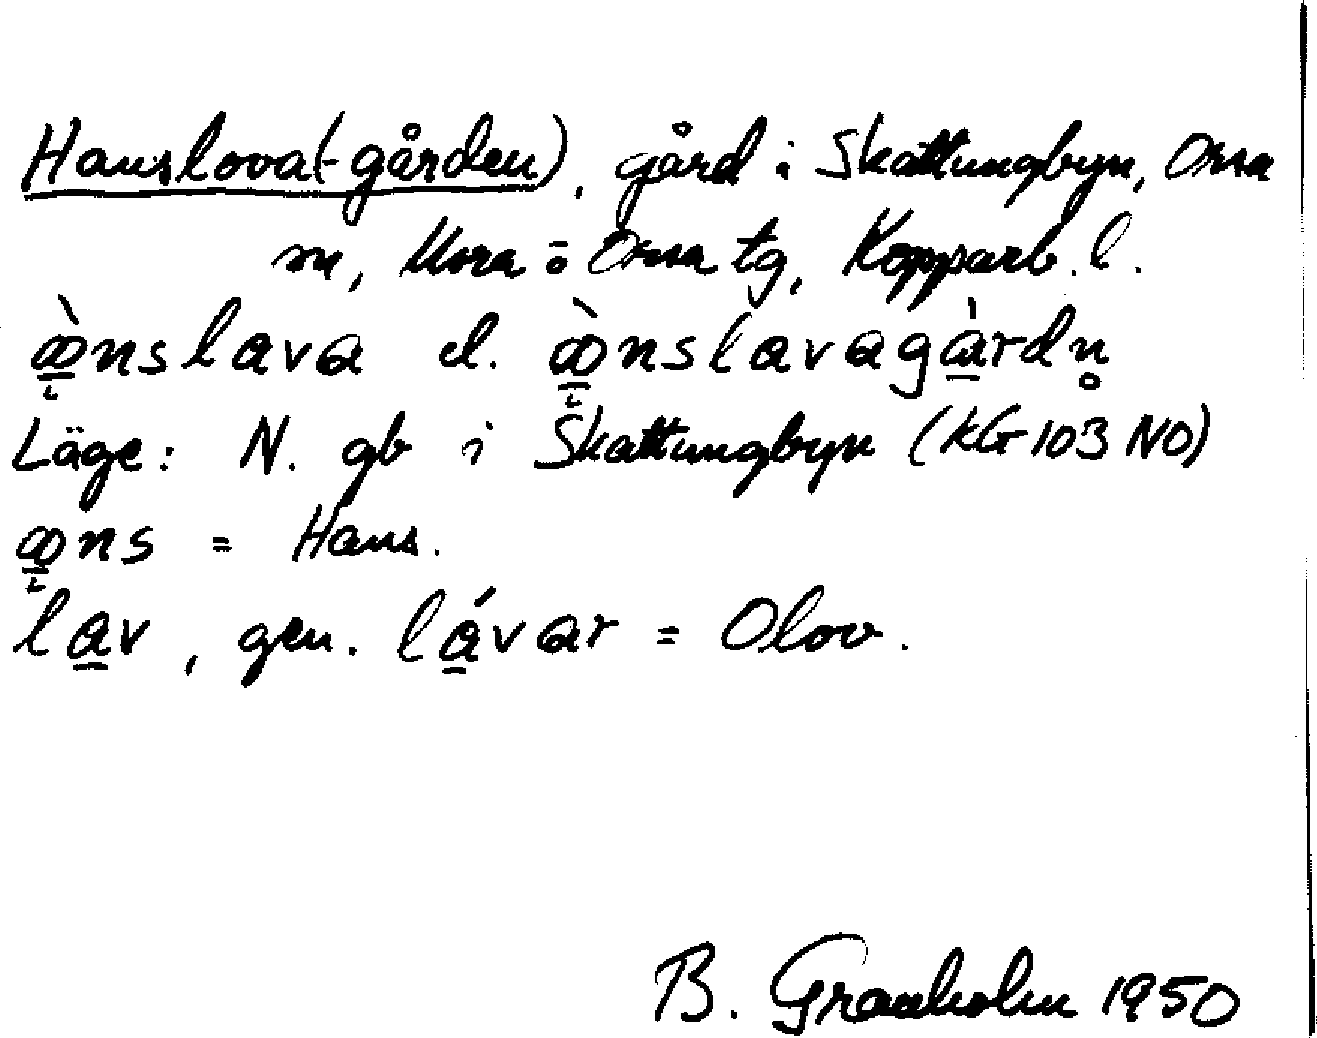 Hanslova(-gården), gård i Skattungbyn, Orsa
sn, Mora o Orsa tg, Kopparb. l.
ꝏ̀nslava el. ꝏ̀nslavagàrdn̥
Läge: N. gb i Skattungbyn (KG 103 NO)
ꝏns = Hans.
la̲v, gen. lá̲var = Olov.
B. Granholm 1950